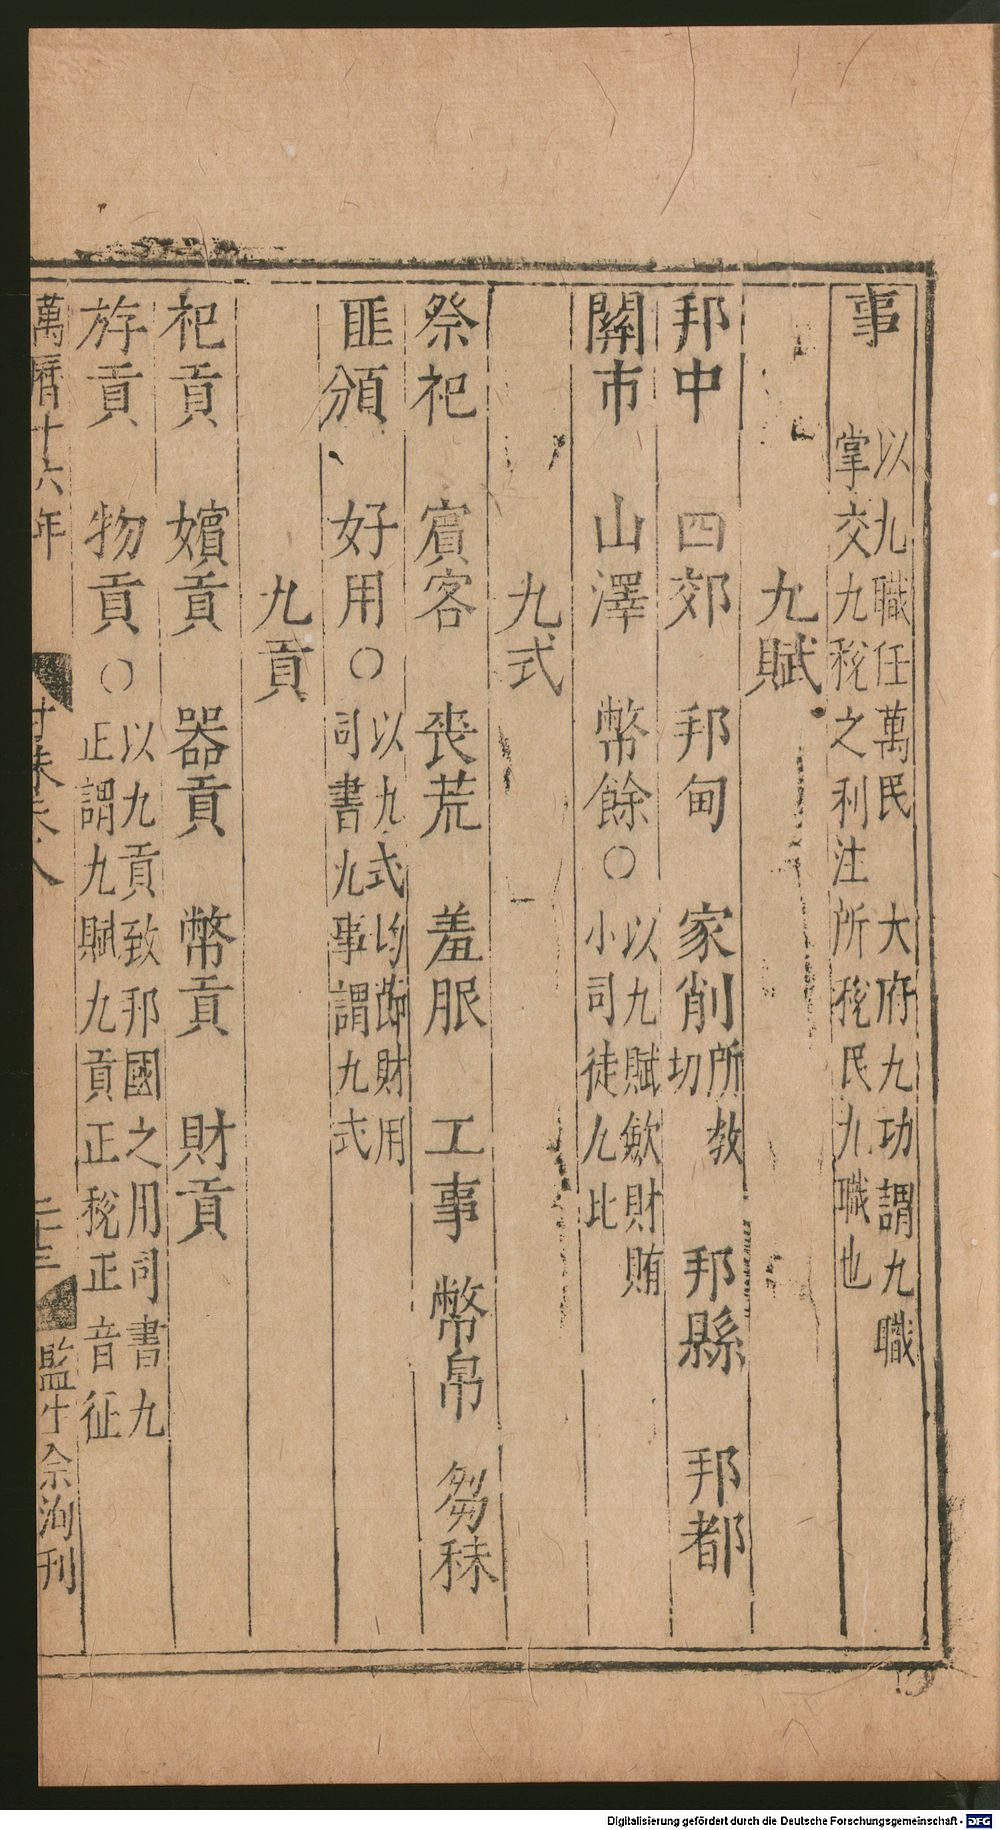 事 以九職任萬民 大府九功謂九職
掌交九稅之利注所稅民九職也
九賦
邦中 四郊 邦甸 家削所教切 邦縣 邦都
關市 山澤 幣餘〇以九賦斂財賄
小司徒九比
九式
祭祀 賓客 喪荒 羞服 工事 幣帛 芻秣
匪頒 好用〇以九式均節財用
司書九事謂九式
九貢
祀貢 嬪貢 器貢 幣貢 財貢
斿貢 物貢〇以九貢致邦國之用司書九
正謂九賦九貢正稅正音征
萬曆十六年
二十三
監生余洵刊
Digitalisierung gefördert durch die Deutsche Forschungsgemeinschaft - DFG